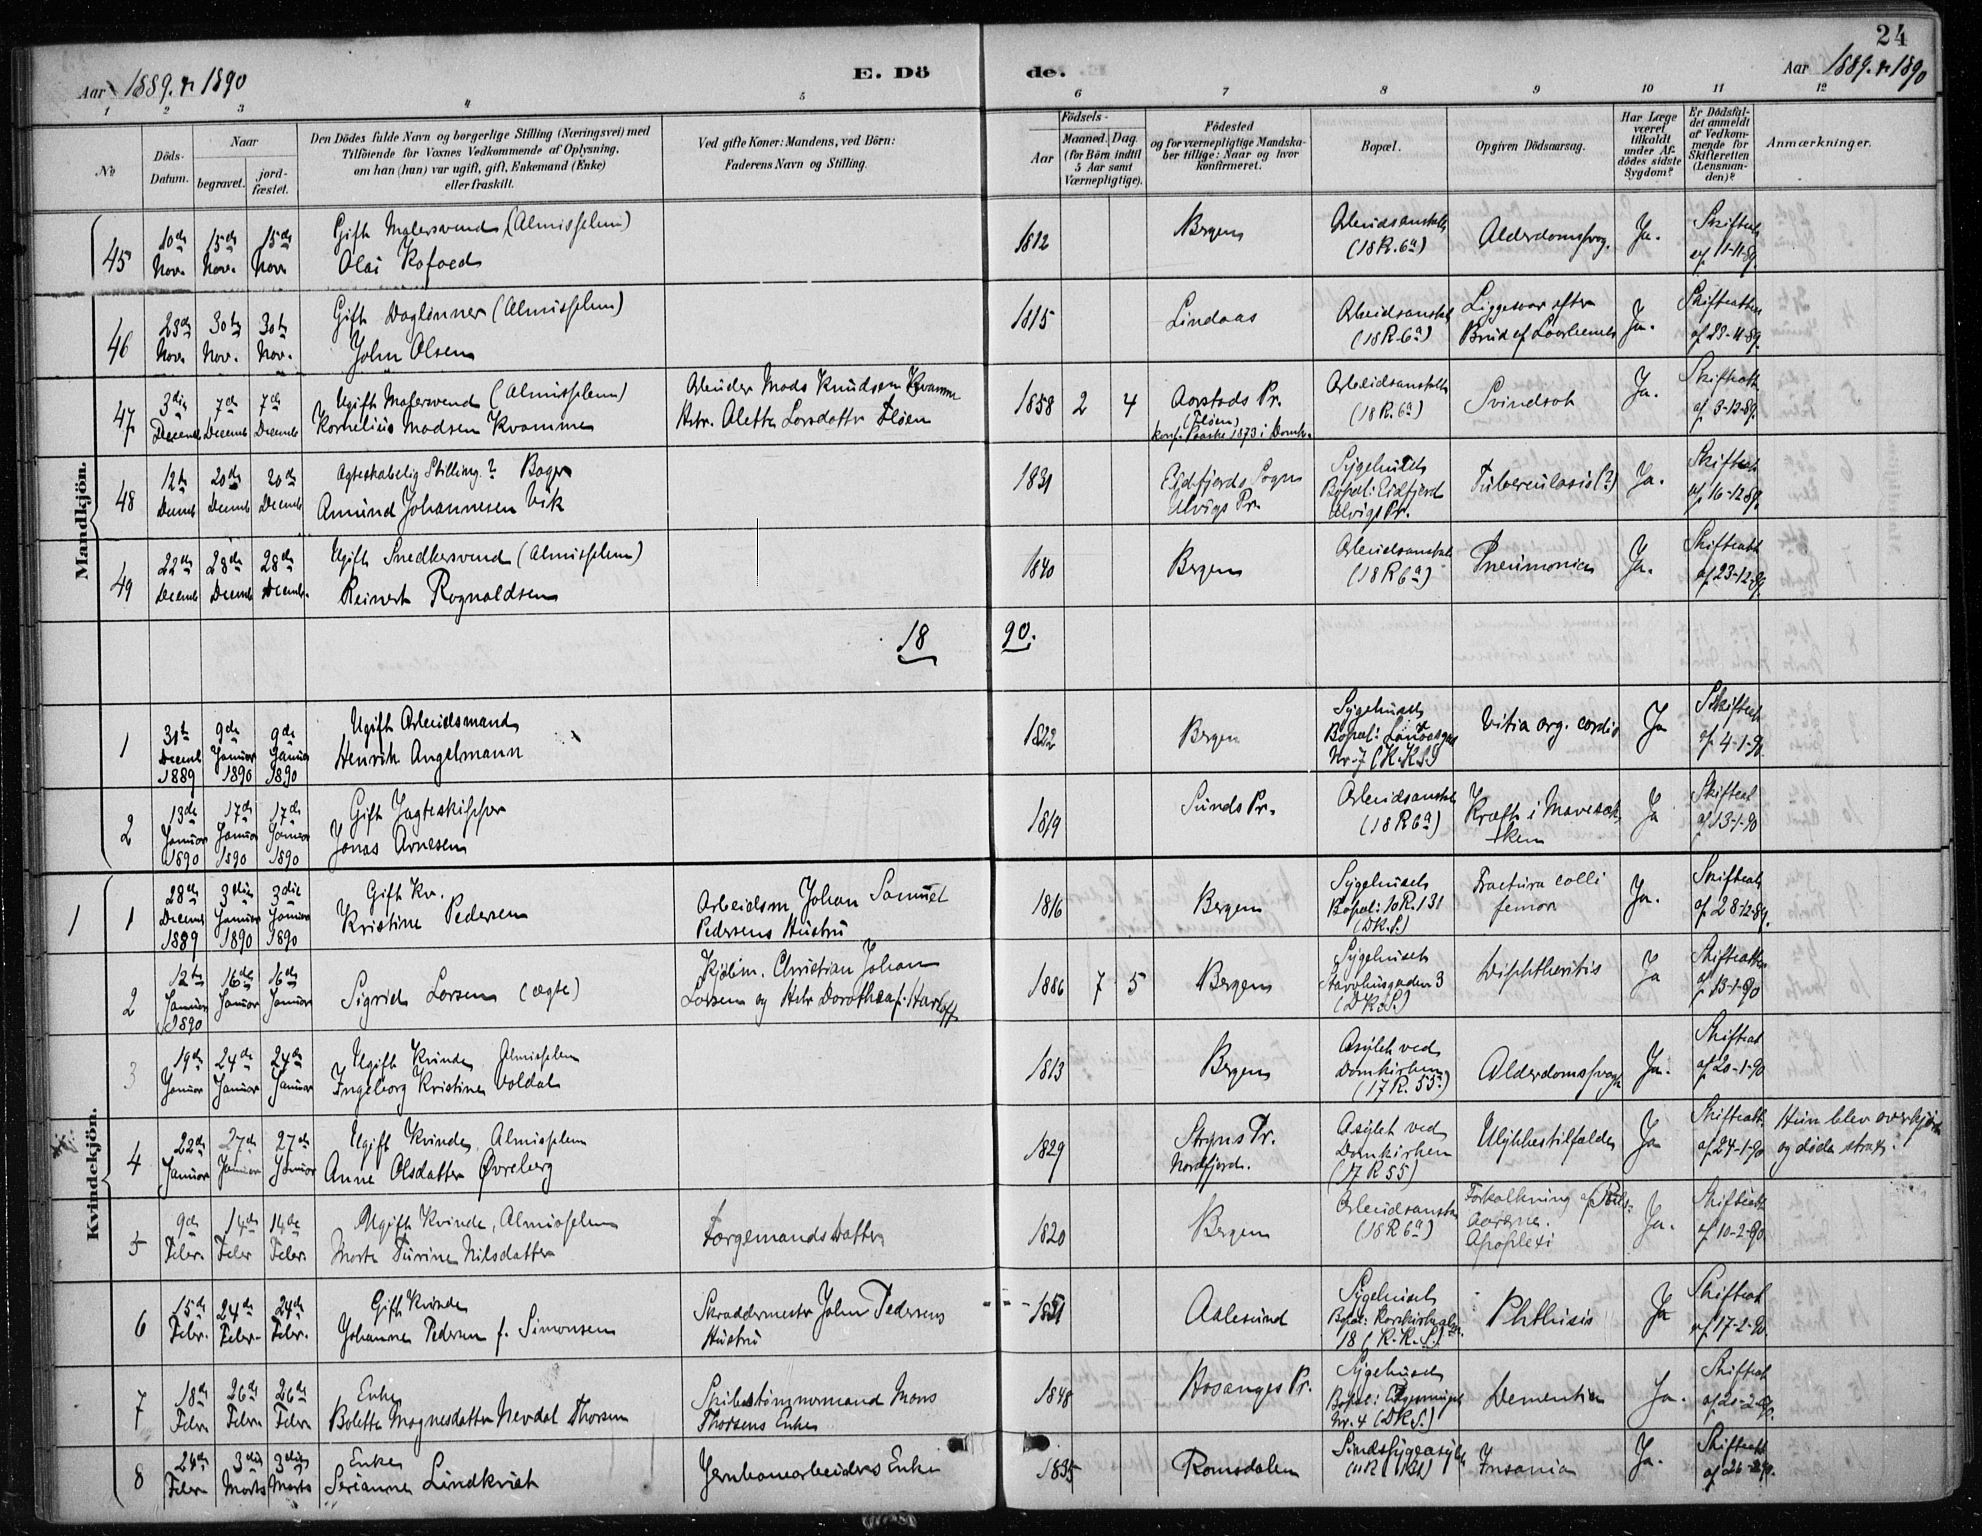 24
Aar 1889 & 1890
E. Dö
de.
Aar 1889 & 1890
1 2 3 4 5 6 7 8 9 10 11 12
№
Döds-Datum.
Naar
begravet.
jord-fæstet.
Den Dödes fulde Navn og borgerlige Stilling (Næringsvei) med
Tilföiende for Voxnes Vedkommende af Oplysning,
om han (hun) var ugift, gift, Enkemand (Enke)
eller fraskilt.
Ved gifte Koner: Mandens, ved Börn:
Faderens Navn og Stilling.
Födsels-
Aar
Maaned. Dag.
(for Börn indtil
5 Aar samt
Værnepligtige).
Födested
og for værnepligtige Mandska-
ber tillige: Naar og hvor
konfirmeret.
Bopæl.
Opgiven Dödsaarsag.
Har Læge
været
tilkaldt
under Af-
dödes sidste
Sygdom?
Er Dödsfal-
det anmeldt
af Vedkom-
mende for
Skifteretten
(Lensman-
den)?
Anmærkninger.
Mandkjön.
45 10de Nov. 15de Nov. 15de Nov. Gift Malersvend (Almisselem)
Olai Kofoed
1812 Bergen Arbeidsanstalt (18 R. 6a) Alderdomssvag. Ja. Skifteatt. af 11-11-89.
46 23de Nov. 30te Nov. 30te Nov. Gift Daglönner (Almisselem)
John Olsen
1815 Lindaas Arbeidsanstalt (18 R. 6a) Liggesaar efter Brud af Laarbenet Ja. Skifteatten af 23-11-89.
47 3die Decemb 7de Decemb 7de Decemb Ugift Malersvend (Almisselem)
Kornelius Madsen Kvamme
Arbeider Mads Knudsen Kvamme
Hstr. Alette Larsdatter Fløen
1858 2 4 Aarstads Pr. (Fløen) konf. Paaske 1873 i Domk. Arbeidsanstalt (18 R. 6a) Svindsot Ja. Skifteatt. af 3-12-89.
48 12te Decemb 20de Decemb 20de Decemb Ægteskabelig Stilling? Bager
Amund Johannesen Vik
1831 Eidfjords Sogn Ulvigs Pr. Sygehuset Bopæl: Eidfjord Ulvigs Pr. Tuberculosis (?) Ja. Skifteatt. af 16-12-89.
49 22de Decemb 28de Decemb 28de Decemb. Ugift Snedkersvend (Almisselem)
Reinert Rognaldsen
1840 Bergen Arbeidsanstalt (18 R 6a) Pneumonia Ja. Skifteatt. af 23-12-89.
18 90.
1 31te Decemb 1889 9de Januar 1890 9de Januar 1890 Ugift Arbeidsmand
Henrik Angelmann
1822 Bergen Sygehuset Nr. 7 (K.K.S.) Vitia org. cordis Ja Skifteatt. af 4-1-90.
2 13de Januar 1890 17de Januar 1890 17de Januar 1890 Gift Jagteskipper
Jonas Arnesen
1819 Sunds Pr. Arbeidsanstalt (18 R 6a) Kræft i Mavesækken Ja Skifteatt. af 13-1-90
Kvindekjön.
1 1 28de Decemb 1889 3die Januar 1890 3die Januar 1890 Gift Kv.
Kristine Pedersen
Arbeidsm. Johan Samuel
Pedersens Hustru
1816 Bergen Sygehuset Bopæl: 10 R. 131 (DK.S.) Fractura colli femor. Ja. Skifteatt. af 28-12-89.
2 12te Januar 1890 16de Januar 16de Januar Sigrid Larsen (ægte)
Kjøbm. Christian Johan
Larsen og Hstr. Dorothea f. Harloff
1886 7 5 Bergen Sygehuset 3 (DK.S.) Diphtheritis Ja Skifteatten af 13-1-90
3 19de Januar 24de Januar 24de Januar Ugift Kvinde Almisselem
Ingeborg Kristine Voldal
1813 Bergen Asylet ved Domkirken (17 R. 55) Alderdomssvag. Ja. Skifteatt. af 20-1-90
4 22de Januar 27de Januar 27de Januar Ugift Kvinde Almisselem
Anne Olsdatter Øvreberg
1829 Stryns Pr. Nordfjord. Asylet ved Domkirken (17 R 55) Ulykkestilfælde Ja Skifteatt. af 24-1-90 Hun blev overkjørt og døde straks.
5 9de Febr. 14de Febr 14de Febr Ugift Kvinde, Almisselem
Marte Turine Nilsdatter
Færgemands Datter
1820 Bergen Arbeidsanstalt (18 R 6a) Forkalkning af Puls-Aarerne. Apoplexi Ja. Skifteatt. af 10-2-90.
6 15de Febr. 24de Febr. 24de Febr. Gift Kvinde
Johanne Pedersen f. Simonsen
Skræddermester John Pedersens
Hustru
1851 Aalesund Sygehuset 18 (K.K.S.) Phthisis Ja Skifteatt. af 17-2-90.
7 18de Febr 26de Febr 26de Febr Enke
Bolette Magnesdatter Nevdal Thorsen
Skibstømmermand Mons
Thorsens Enke
1848 Hosanger Pr. Sygehuset Nr. 4 (DK.S.) Dementia Ja. Skifteatt. af 20-2-90.
8 24de Febr 3die Marts 3die Marts Enke
Serianne Lindkvist
Jernbanearbeiders Enke
1835 Romsdalen Sindssygeasylet Insania Ja. Skifteatt. af 26-2-90.